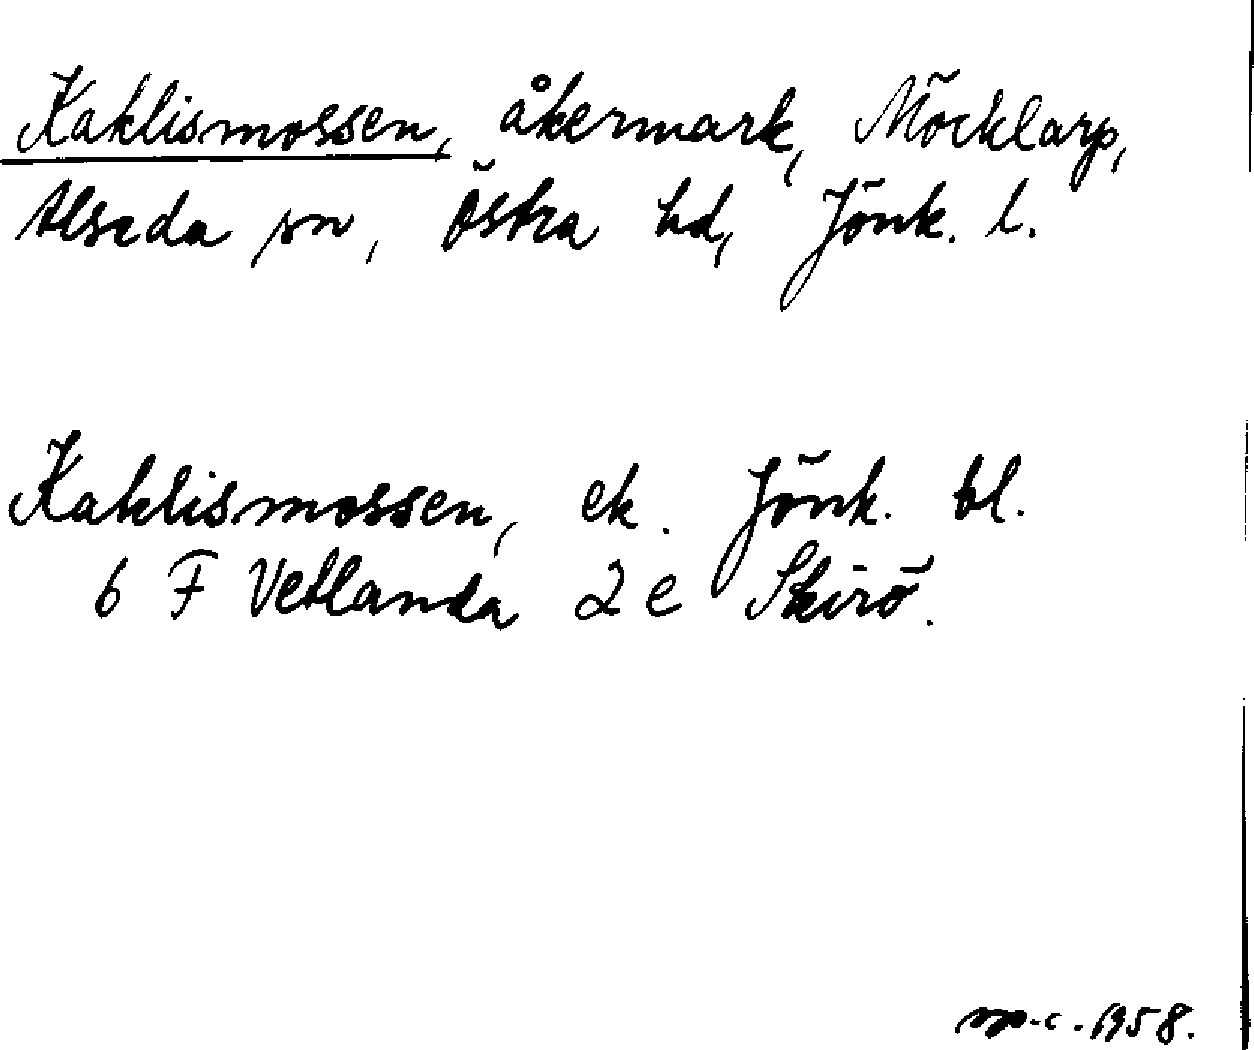 Kaklismossen, åkermark, Möcklarp,
Alseda sn, Östra hd, Jönk. l.
Kaklismossen, ek. Jönk. bl.
6 F Vetlanda 2 e Skirö.
1958.